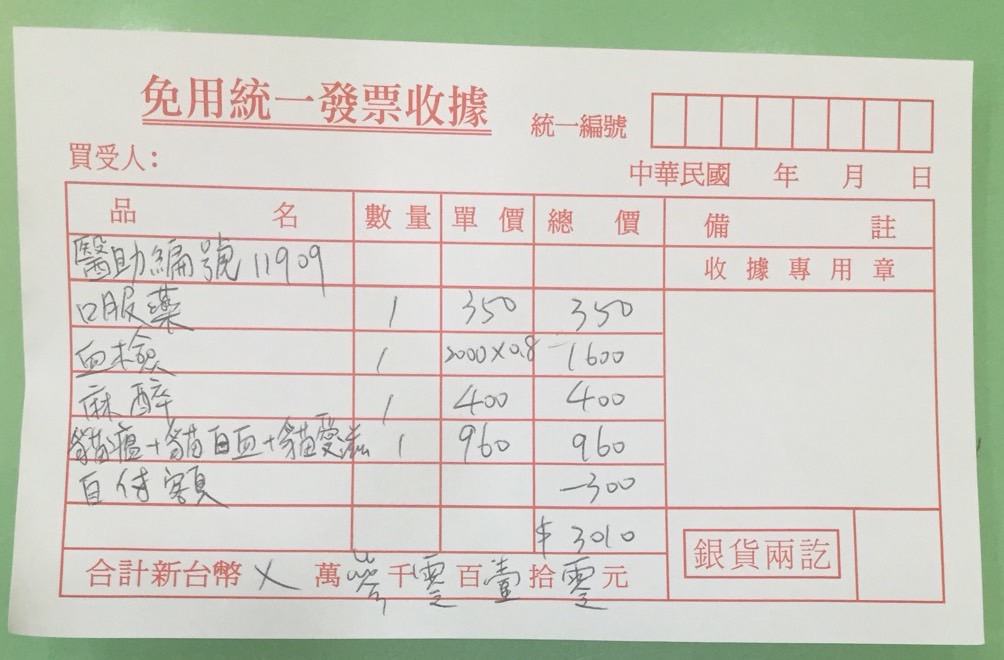 免用統一發票收據
統一編號
買受人：
中華民國 年 月 日
品名 數量 單價 總價 備註
收據專用章
醫助編號11909
口服藥 1 350 350
血檢 1 2000×0.8 1600
麻醉 1 400 400
貓瘟+貓白血+貓愛滋 1 960 960
自付額 -300
$3010
合計新台幣 ㄨ 萬 參 千 零 百 壹 拾 零 元
銀貨兩訖